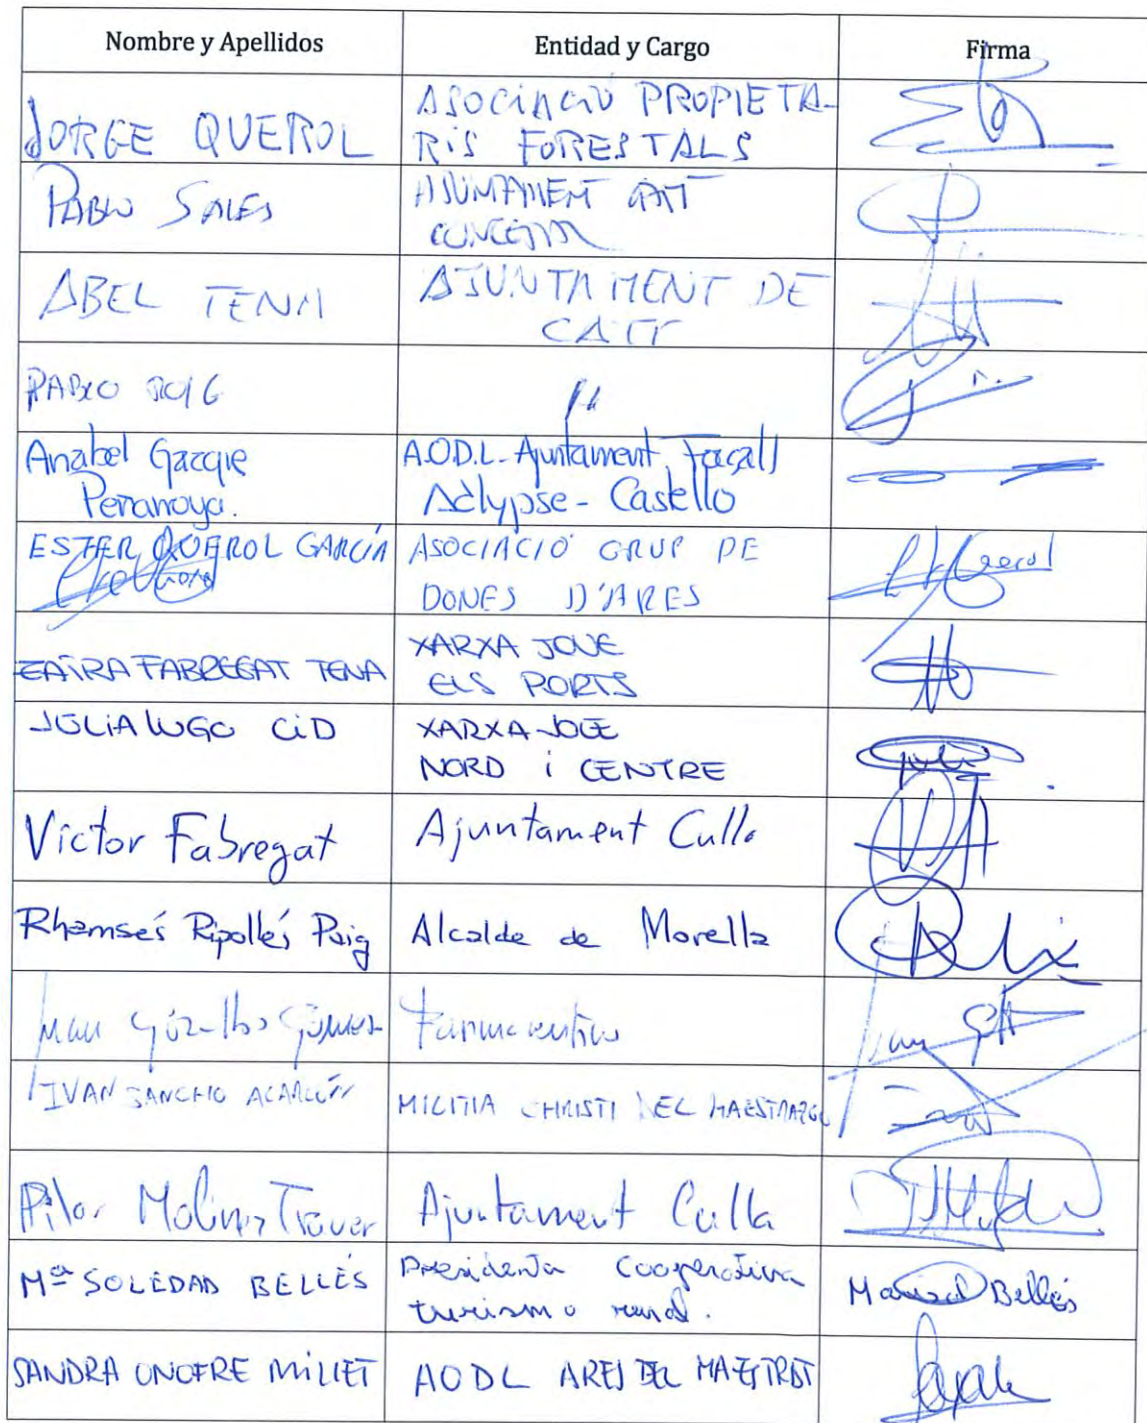 Nombre y Apellidos Entidad y Cargo Firma
JORGE QUEROL ASOCIACIÓ PROPIETA-
RIS FORESTALS
PABLO SALES AJUNTAMENT CATÍ
ABEL TENA AJUNTAMENT DE
CATÍ
PABLO ROIG
Anabel A.O.D.L- Ajuntament
Castelló
ESTER QUEROL GARCÍA ASOCIACIÓ GRUP DE
DONES D'ARES
ZAIRA FABREGAT TENA XARXA JOVE
ELS PORTS
JULIA LUGO CiD XARXA JOVE
NORD i CENTRE
Víctor Fabregat Ajuntament Culla
Rhamsés Ripollés Puig Alcalde de Morella
IVAN SANCHO ALARCÓN MILITIA CHRISTI DEL MAESTRAZGO
Pilar Ajuntament Culla
Mª SOLEDAD BELLÉS Presidenta Cooperativa
turismo rural.
Marisol Bellés
SANDRA ONOFRE MILLET AODL ARES DEL MAESTRAT